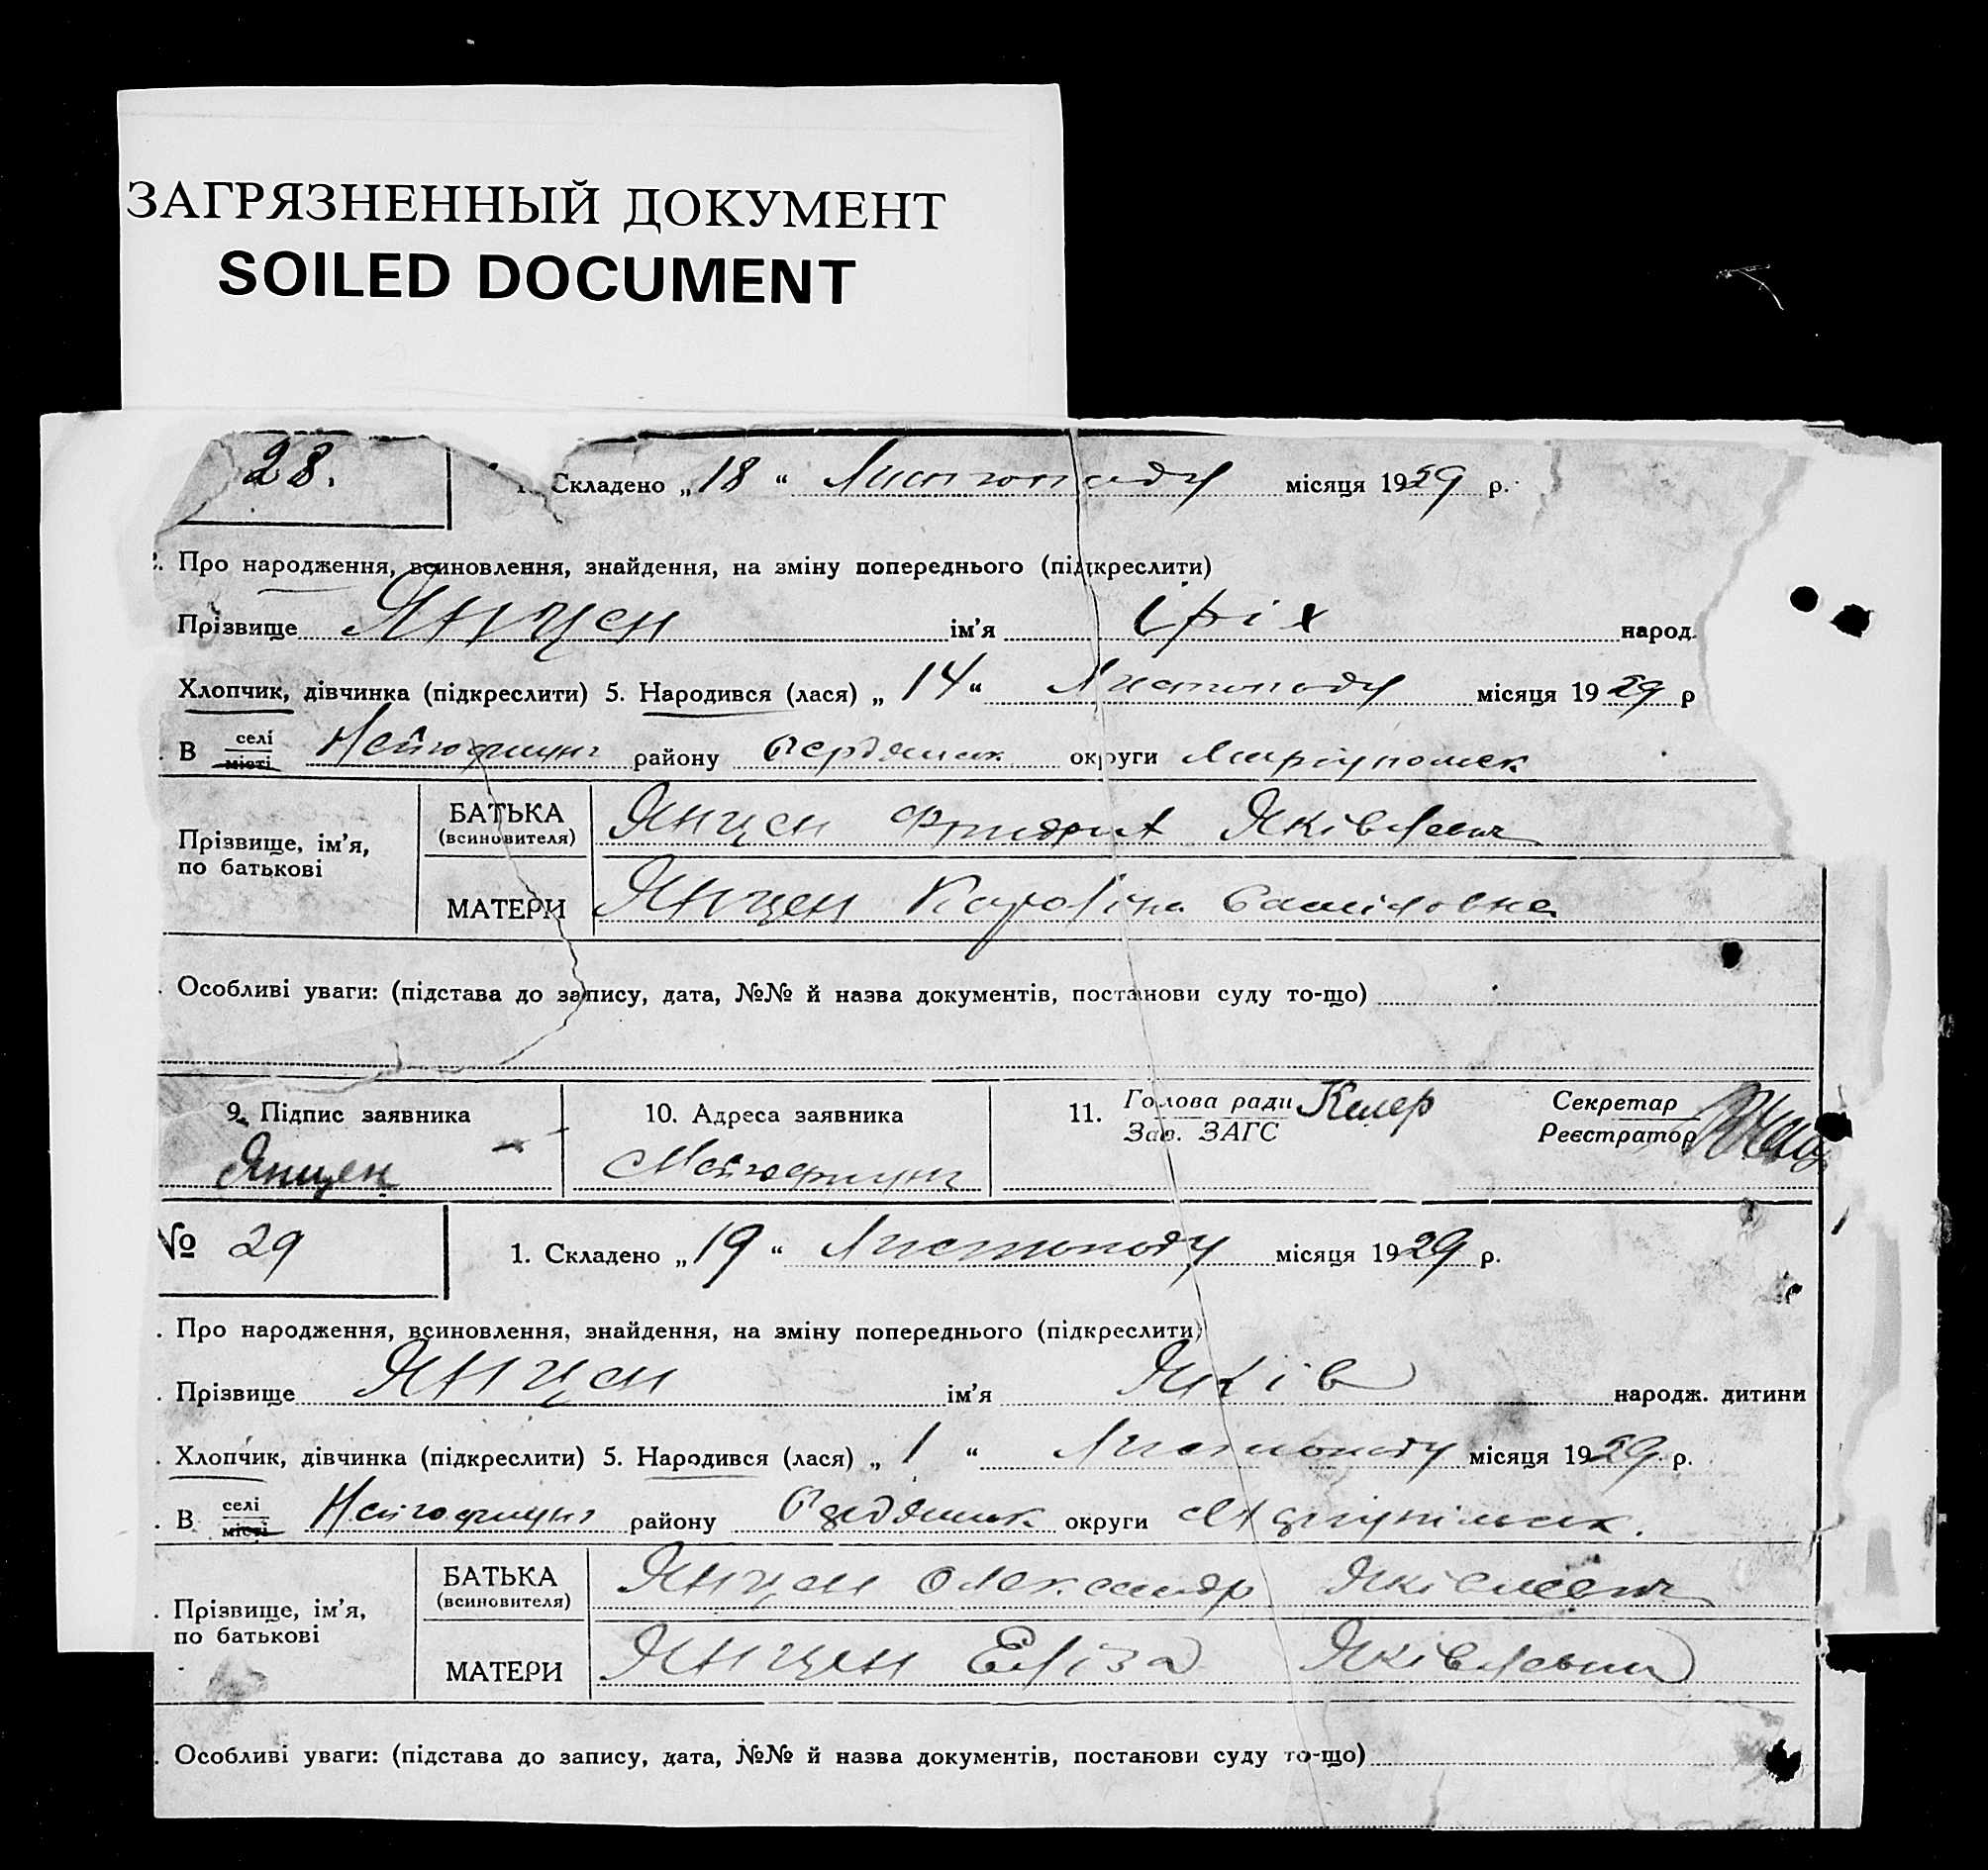 ЗАГРЯЗНЕННЫЙ ДОКУМЕНТ
SOILED DOCUMENT
28. 1. Складено „18“ Листопаду місяця 1929 р.
Про народження, всиновлення, знайдення, на зміну попереднього (підкреслити)
Прізвище Янцен ім'я Еріх народ.
Хлопчик, дівчинка (підкреслити) 5. Народився (лася) „14“ Листопаду місяця 1929 р
В селі місті Нейгофнунг району Бердянськ округи Маріупольск
Прізвище, ім'я, по батькові
БАТЬКА (всиновителя) Янцен Фридрих Яківлевич
МАТЕРИ Янцен Кароліна
Особливі уваги: (підстава до запису, дата, №№ й назва документів, постанови суду то-що)
9. Підпис заявника 10. Адреса заявника 11. Голова ради Зав. ЗАГС Келер Секретар Реєстратор
Янцен Нейгофнунг
№ 29 1. Складено „19“ Листопаду місяця 1929 р.
. Про народження, всиновлення, знайдення, на зміну попереднього (підкреслити)
. Прізвище Янцен ім'я Яків народж. дитини
. Хлопчик, дівчинка (підкреслити) 5. Народився (лася) „1“ Листопаду місяця 1929 р.
. В селі місті Нейгофнунг району Бердянськ округи Маріупільськ.
. Прізвище, ім'я, по батькові
БАТЬКА (всиновителя) Янцен Олександр Яківлевич
МАТЕРИ Янцен Еліза Яківлевна
. Особливі уваги: (підстава до запису, дата, №№ й назва документів, постанови суду то-що)